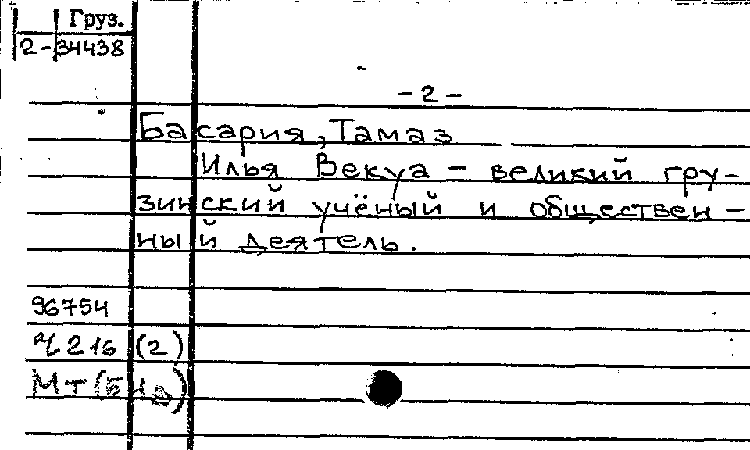 Груз.
2-34438
- 2 -
Басария, Тамаз
Илья Векуа - великий гру-
зинский учёный и обществен-
ный деятель.
96754
Ч 216 (2)
Мт (БНВ)